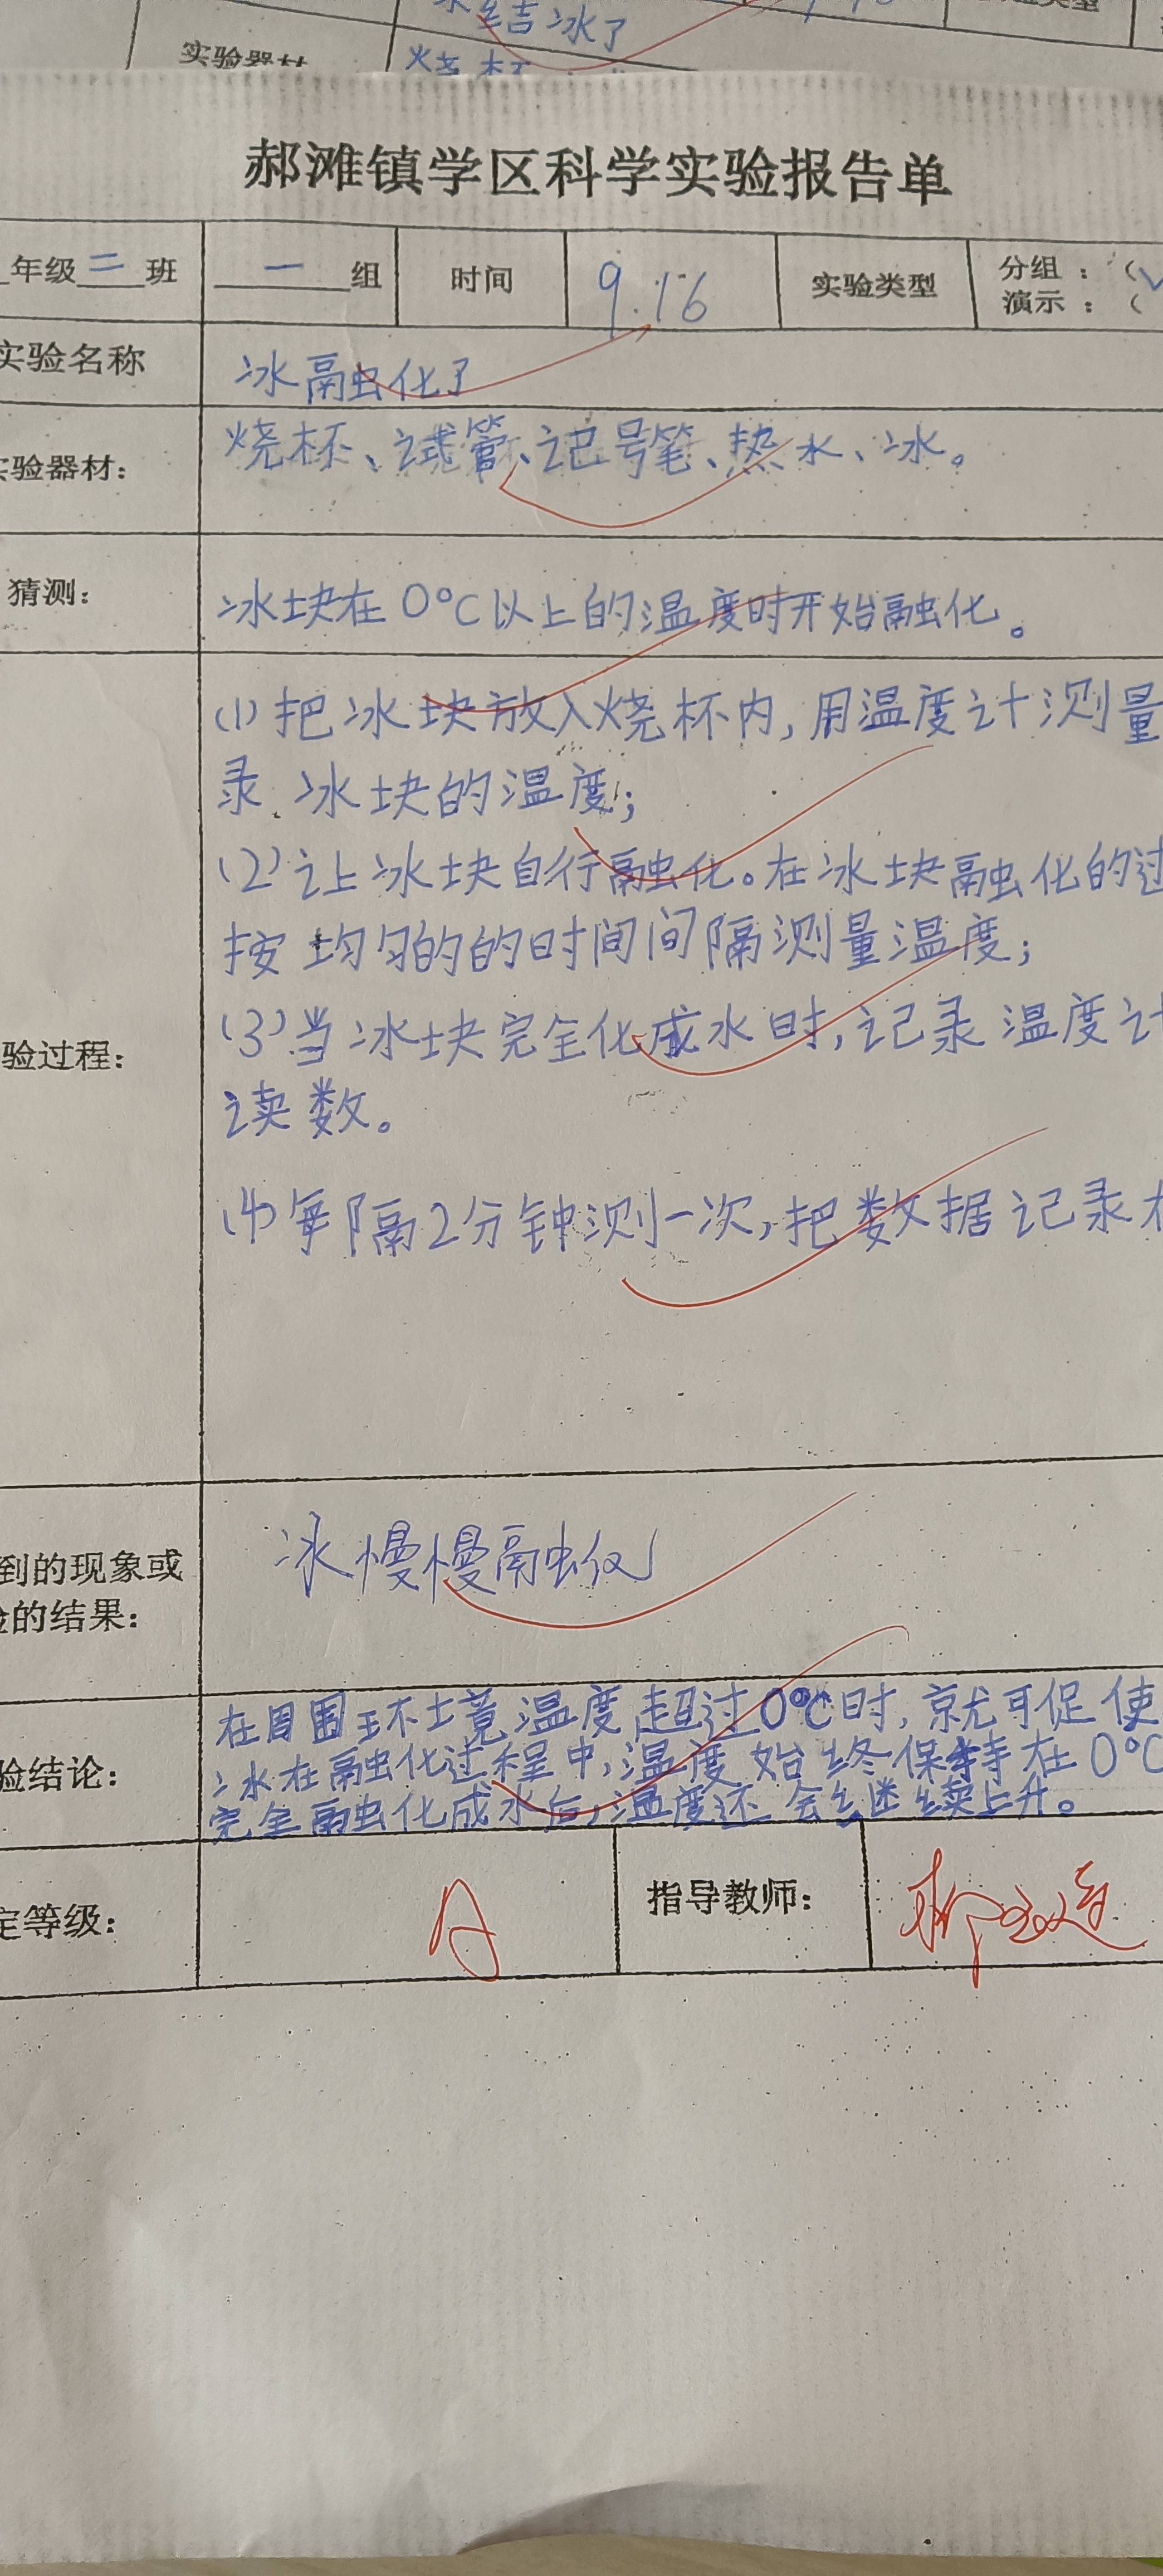 结冰了
实验器材
烧杯
郝滩镇学区科学实验报告单
年级二班 一组 时间 9.16 实验类型 分组：（√
演示：（
实验名称 冰融化了
验器材： 烧杯、试管、记号笔、热水、冰。
猜测： 冰块在0℃以上的温度时开始融化。
(1)把冰块放入烧杯内,用温度计测量
录冰块的温度;
(2)让冰块自行融化。在冰块融化的过
按均匀的的时间间隔测量温度;
(3)当冰块完全化成水时,记录温度计
验过程：
读数。
(4)每隔2分钟测一次,把数据记录
到的现象或
的结果： 冰慢慢融化
在周围环境温度超过0℃时,就可促使
验结论： 冰在融化过程中,温度始终保持在0℃
完全融化成水后,温度还会继续上升。
定等级： A 指导教师：